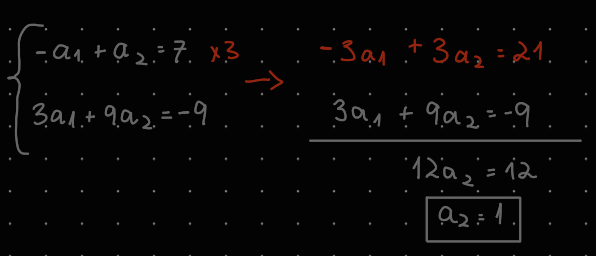 -a₁ + a₂ = 7 ×3
3a₁ + 9a₂ = -9
→ -3a₁ + 3a₂ = 21
3a₁ + 9a₂ = -9
12a₂ = 12
a₂ = 1